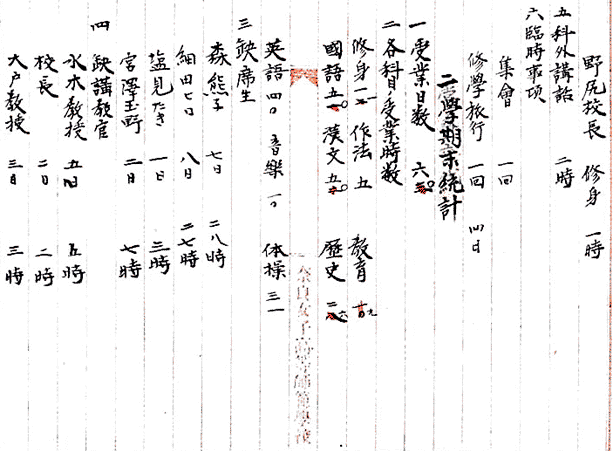 野尻校長 修身 一時
五 科外講話 二時
六 臨時事項
集會 一回
修學旅行 一回 四日
二學期末統計
一 受業日数 六三
二 各科目受業時数
修身 一一 作法 五 教育
國語 五 漢文 五 歷史
英語 四〇 音樂 一〇 体操 三一
三 缺席生
森 熊子 七日 二八時
細田 八日 二七時
塩見たき 一日 三時
宮澤玉野 二日 七時
四 缺講教官
水木教授 五日 五時
校長 二日 二時
大戸教授 三日 三時
奈良女子高等師範學校